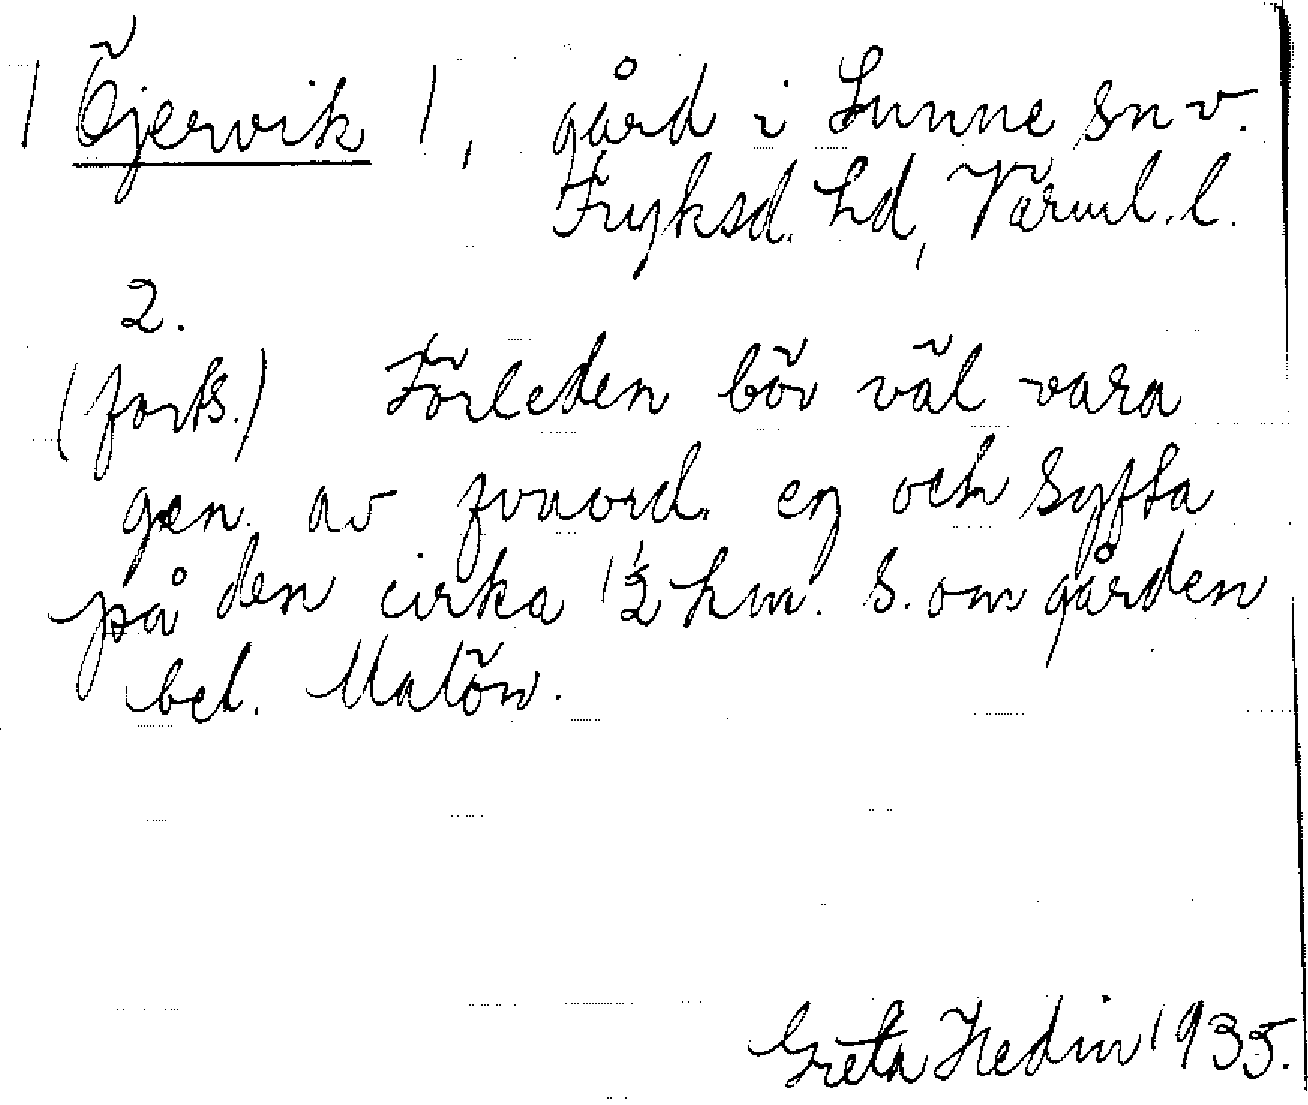 | Öjervik |, gård i Sunne sn v.
Fryksd. hd, Värml. l.
2.
(forts.) Förleden bör väl vara
gen. av fvnord. ey och syfta
på den cirka 1 1/2 km. S. om gården
bel. Malön.
Greta Hedin 1935.